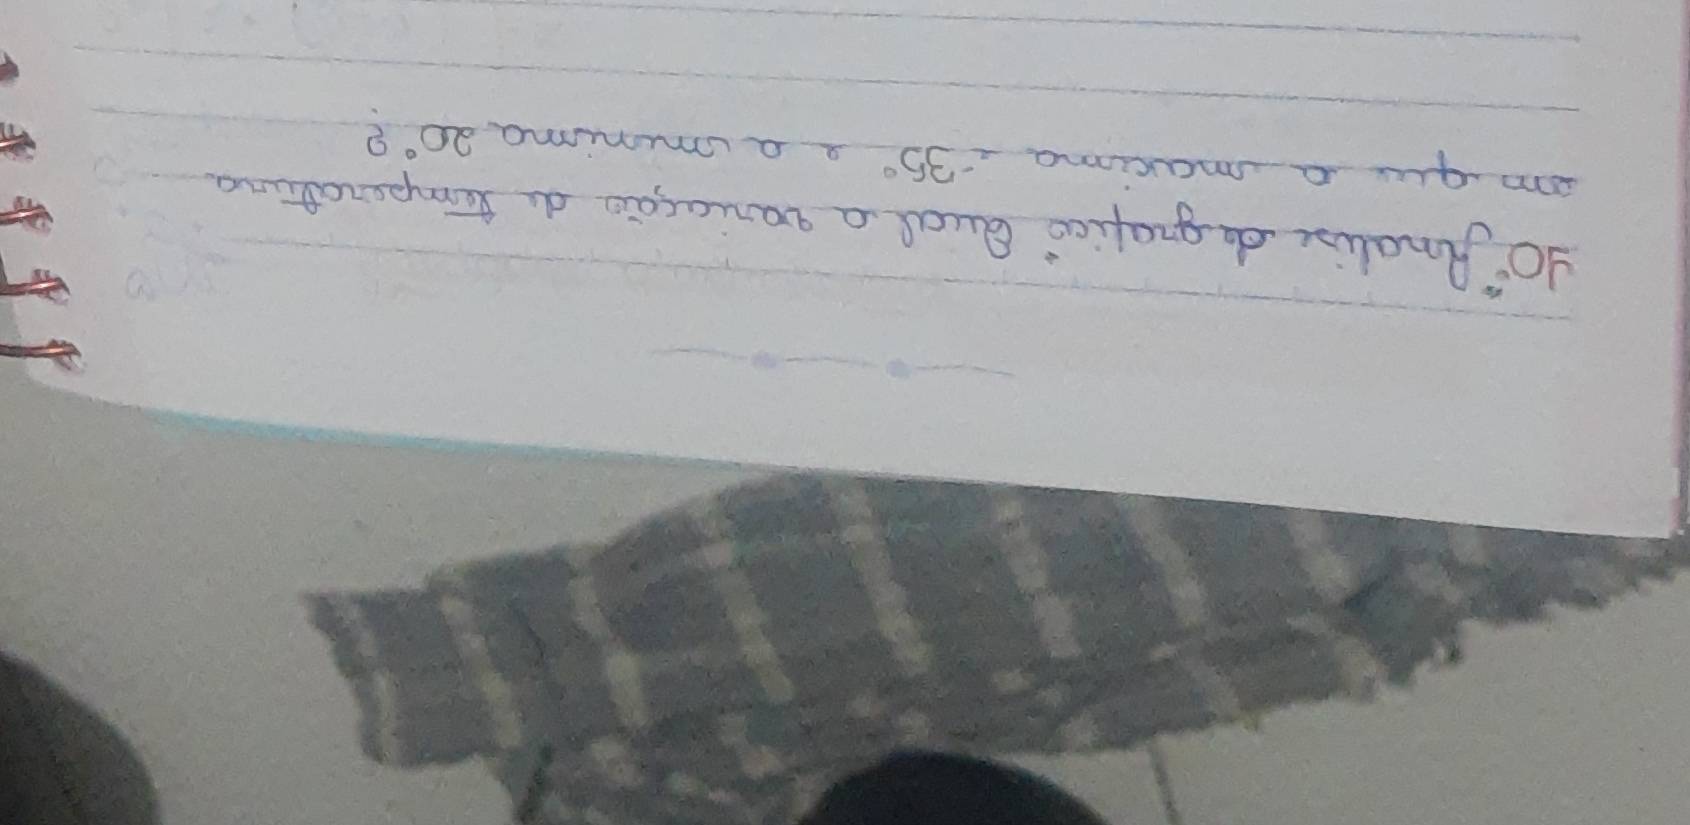 10° "Analise de grafico" Qual a variação de temperatura
em que a maxima é -35° e a minima 20°?